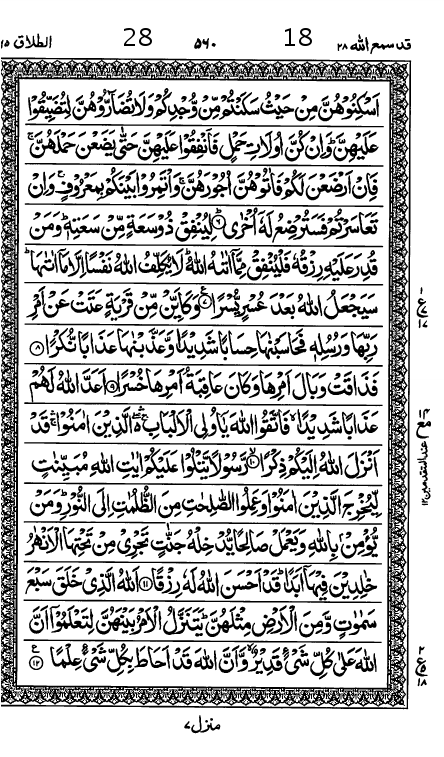 قد سمع الله ٢٨ 18 ٥٦٠ 28 الطلاق ٦٥
اَسْكِنُوْهُنَّ مِنْ حَيْثُ سَكَنْتُمْ مِّنْ وُّجْدِكُمْ وَلَا تُضَآرُّوْهُنَّ لِتُضَيِّقُوْا
عَلَيْهِنَّ ؕ وَاِنْ كُنَّ اُولَاتِ حَمْلٍ فَاَنْفِقُوْا عَلَيْهِنَّ حَتّٰى يَضَعْنَ حَمْلَهُنَّ ۚ
فَاِنْ اَرْضَعْنَ لَكُمْ فَاٰتُوْهُنَّ اُجُوْرَهُنَّ ۚ وَاْتَمِرُوْا بَيْنَكُمْ بِمَعْرُوْفٍ ۚ وَاِنْ
تَعَاسَرْتُمْ فَسَتُرْضِعُ لَهٗۤ اُخْرٰى ؕ ﴿٦﴾ لِيُنْفِقْ ذُوْ سَعَةٍ مِّنْ سَعَتِهٖ ؕ وَمَنْ
قُدِرَ عَلَيْهِ رِزْقُهٗ فَلْيُنْفِقْ مِمَّاۤ اٰتٰىهُ اللّٰهُ ؕ لَا يُكَلِّفُ اللّٰهُ نَفْسًا اِلَّا مَاۤ اٰتٰىهَا ؕ
سَيَجْعَلُ اللّٰهُ بَعْدَ عُسْرٍ يُّسْرًا ﴿٧﴾ وَكَاَيِّنْ مِّنْ قَرْيَةٍ عَتَتْ عَنْ اَمْرِ
رَبِّهَا وَرُسُلِهٖ فَحَاسَبْنٰهَا حِسَابًا شَدِيْدًا ۙ وَّعَذَّبْنٰهَا عَذَابًا نُّكْرًا ﴿٨﴾
فَذَاقَتْ وَبَالَ اَمْرِهَا وَكَانَ عَاقِبَةُ اَمْرِهَا خُسْرًا ﴿٩﴾ اَعَدَّ اللّٰهُ لَهُمْ
عَذَابًا شَدِيْدًا ۙ فَاتَّقُوا اللّٰهَ يٰۤاُولِى الْاَلْبَابِ ۛۖۚ الَّذِيْنَ اٰمَنُوْا ۛؕ قَدْ
اَنْزَلَ اللّٰهُ اِلَيْكُمْ ذِكْرًا ﴿١٠﴾ رَّسُوْلًا يَّتْلُوْا عَلَيْكُمْ اٰيٰتِ اللّٰهِ مُبَيِّنٰتٍ
لِّيُخْرِجَ الَّذِيْنَ اٰمَنُوْا وَعَمِلُوا الصّٰلِحٰتِ مِنَ الظُّلُمٰتِ اِلَى النُّوْرِ ؕ وَمَنْ
يُّؤْمِنْۢ بِاللّٰهِ وَيَعْمَلْ صَالِحًا يُّدْخِلْهُ جَنّٰتٍ تَجْرِىْ مِنْ تَحْتِهَا الْاَنْهٰرُ
خٰلِدِيْنَ فِيْهَاۤ اَبَدًا ؕ قَدْ اَحْسَنَ اللّٰهُ لَهٗ رِزْقًا ﴿١١﴾ اَللّٰهُ الَّذِىْ خَلَقَ سَبْعَ
سَمٰوٰتٍ وَّمِنَ الْاَرْضِ مِثْلَهُنَّ ؕ يَتَنَزَّلُ الْاَمْرُ بَيْنَهُنَّ لِتَعْلَمُوْۤا اَنَّ
اللّٰهَ عَلٰى كُلِّ شَىْءٍ قَدِيْرٌ ۙ وَّاَنَّ اللّٰهَ قَدْ اَحَاطَ بِكُلِّ شَىْءٍ عِلْمًا ﴿١٢﴾
١
ع
١٧
مع
عند المتقدمين ١٢
٢
ع
١٨
منزل ٧